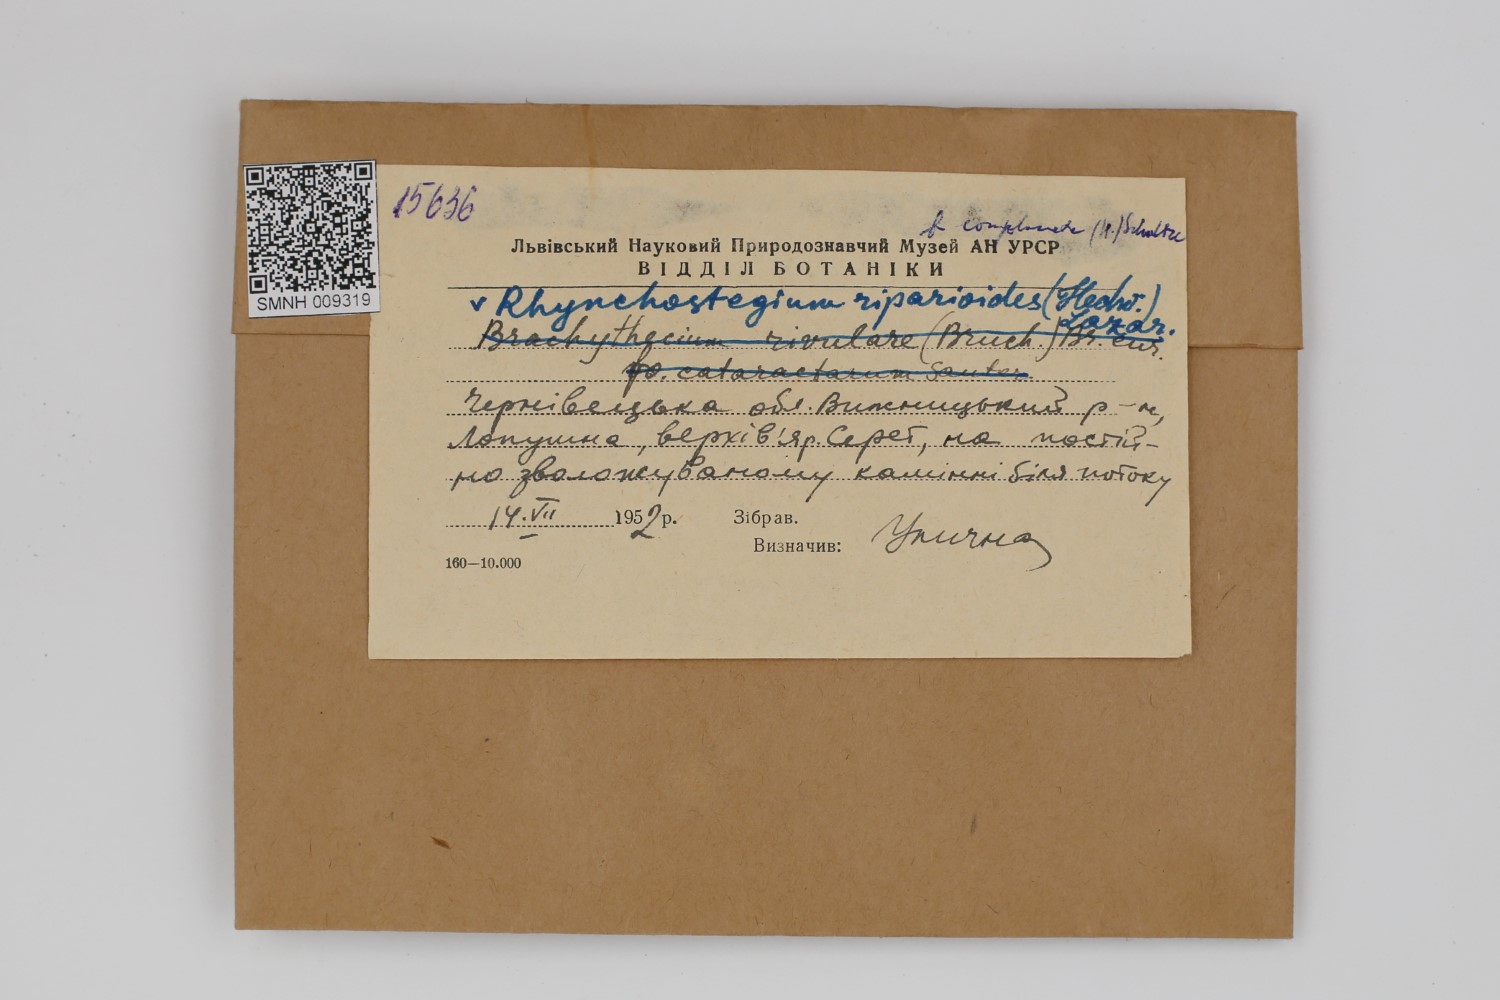 15636
(H.) Schultze
Львівський Науковий Природознавчий Музей АН УРСР
ВІДДІЛ БОТАНІКИ
v Rhynchostegium riparioides (Hedw.)
Lazar.
Brachythecium rivulare (Bruch.) Br. eur.
fo. cataractarum Sauter
Чернівецька обл. Вижницький р-н,
Лопушна, верхів'я р. Серет, на постій-
но зволожуваному камінні біля потоку
14.VII 1952 р. Зібрав.
Визначив: Улична
160—10.000
SMNH 009319